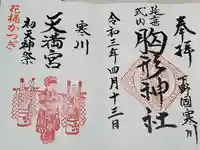 奉拝
下野國寒川
延喜式内
胸形神社
令和三年四月十三日
寒川
天満宮
初天神祭
花梶かつぎ